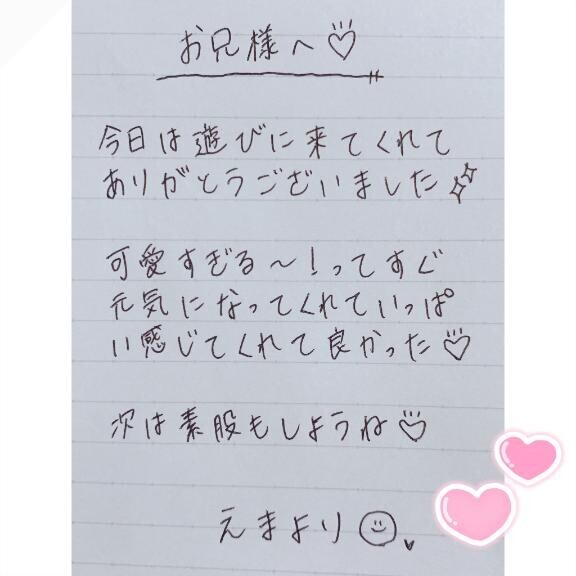 お兄様へ♡
今日は遊びに来てくれて
ありがとうございました✨
可愛すぎる〜!ってすぐ
元気になってくれていっぱ
い感じてくれて良かった♡
次は素股もしようね♡
えまより☺